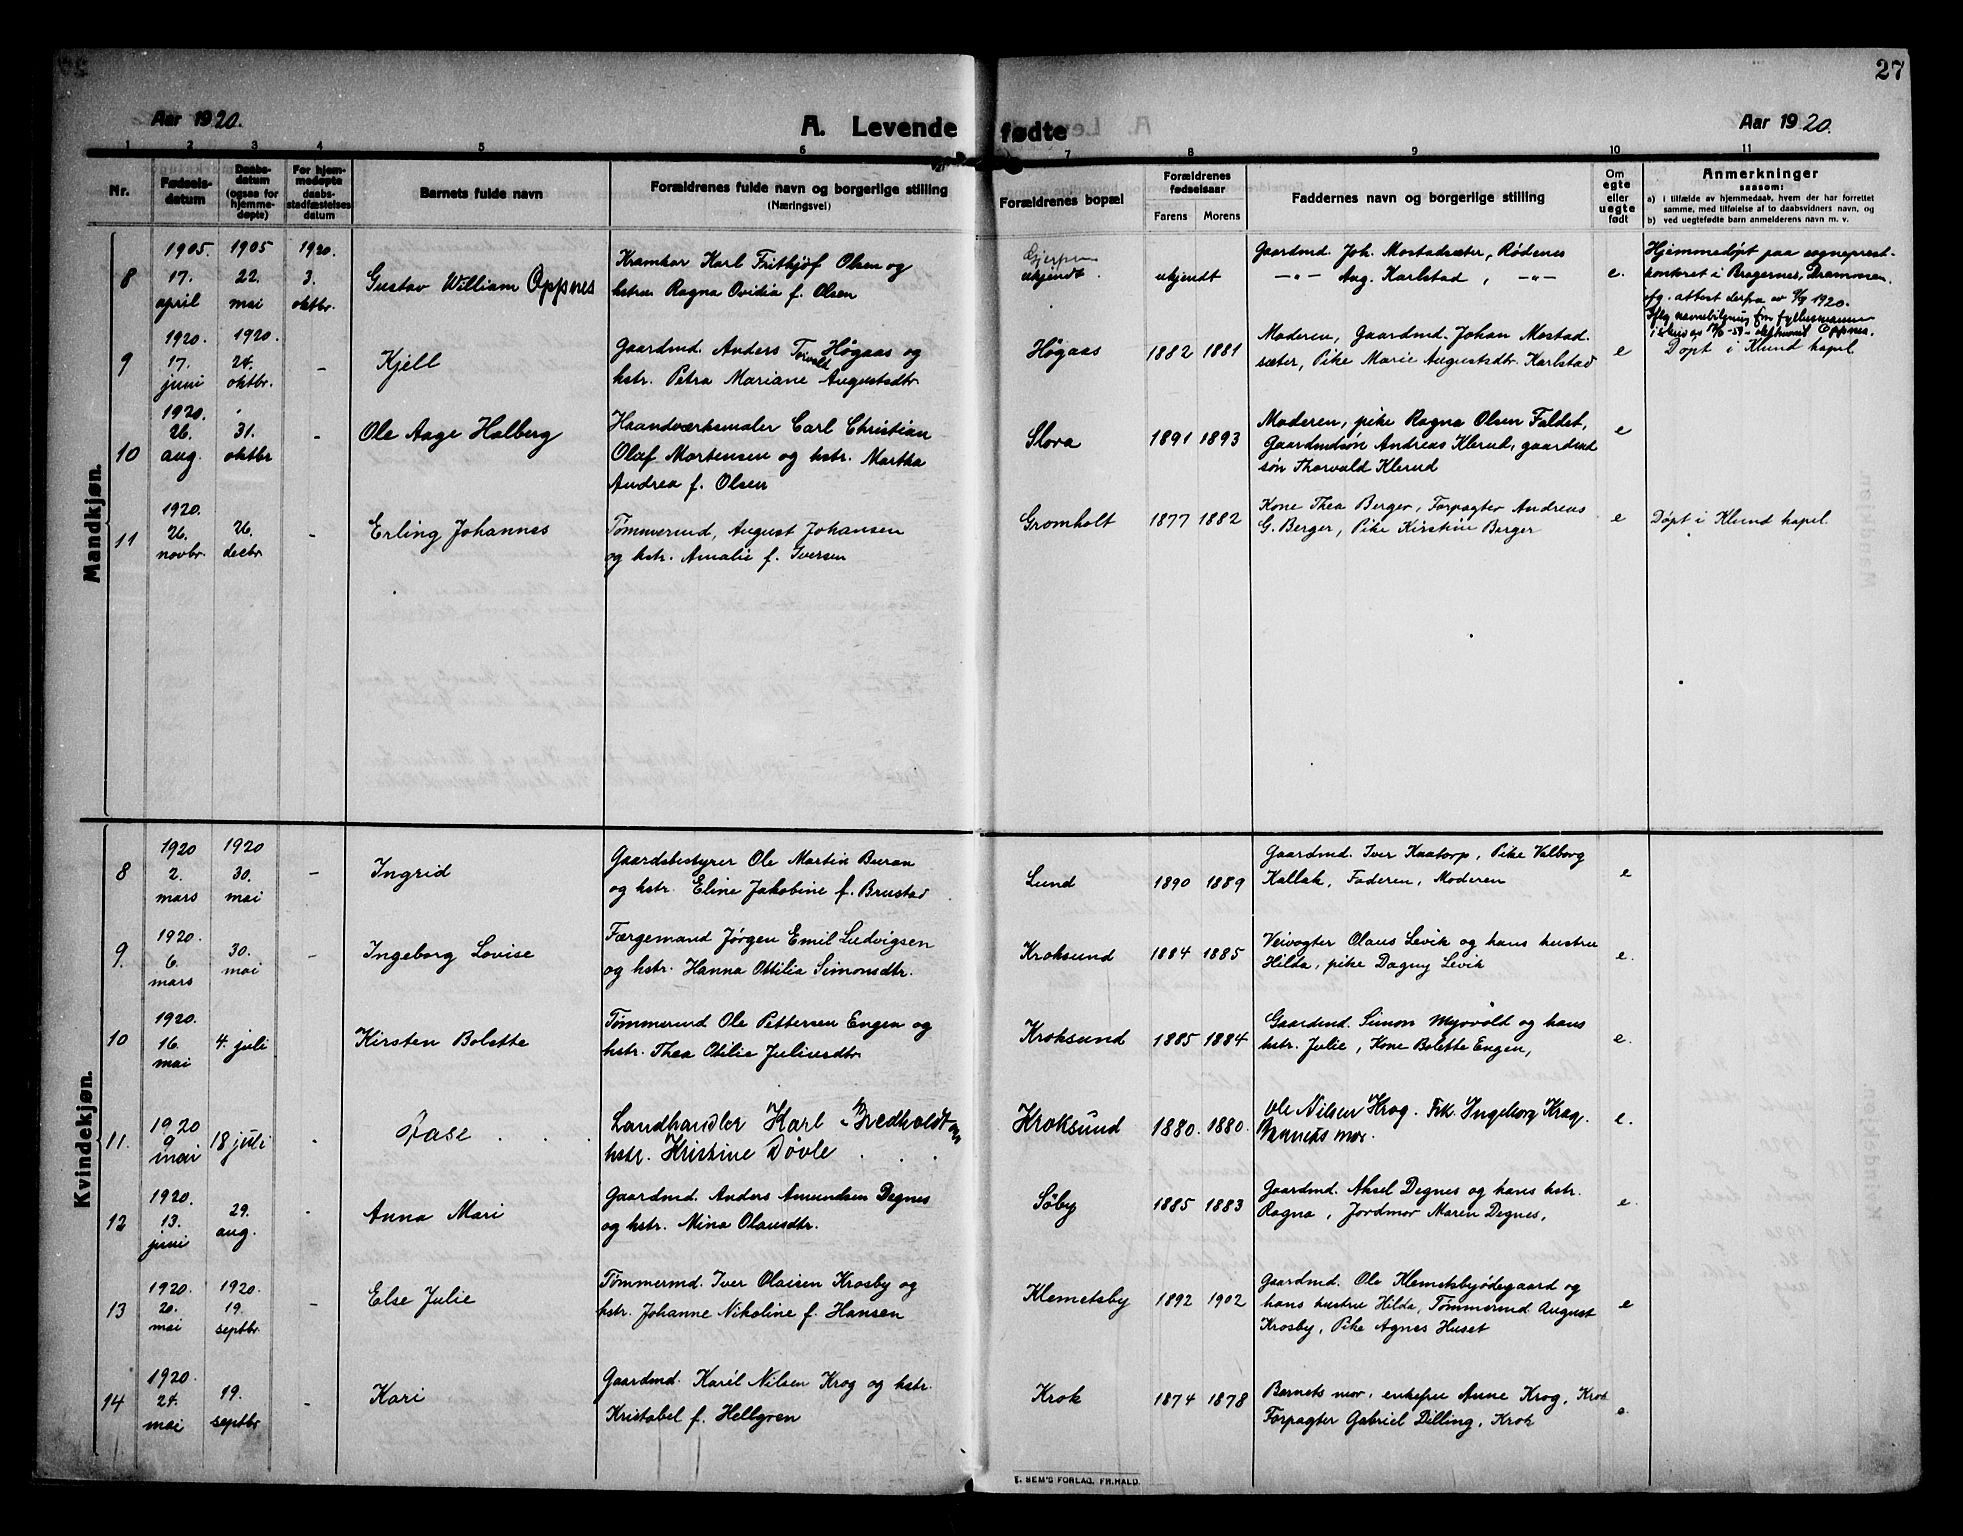 27
Aar 1920.
A. Levende fødte
Aar 1920.
1 2 3 4 5 6 7 8 9 10 11
Nr.
Fødsels-
datum
Daabs-
datum
(ogsaa for
hjemme-
døpte)
For hjem-
medøpte
daabs-
stadfæstelses
datum
Barnets fulde navn
Forældrenes fulde navn og borgerlige stilling
(Næringsvei)
Forældrenes bopæl
Forældrenes
fødselsaar
Farens Morens
Faddernes navn og borgerlige stilling
Om
egte
eller
uegte
født
Anmerkninger
saasom:
a) i tilfælde av hjemmedaab, hvem der har forrettet
samme, med tilføielse af to daabsvidners navn, og
b) ved uegtefødte barn anmelderens navn m. v.
Mandkjøn.
8
1905
17.
april
1905
22.
mai
1920.
3.
oktbr.
Gustav William Oppnes
Kramkar Karl Frithjof Olsen og
hstru Ragna Ovidia f. Olsen
Gjerpen
ukjendt.
ukjendt
Gaardmd. Joh. Mostadsæter, Rødenes
—„— Aug. Karlstad, —„—
e.
Hjemmedøpt paa sogneprest-
kontoret i Bragernes, Drammen
ifg. attest derfra av 9/9 1920.
Iflg navnebilgning fra fylkesmannen
Oppnes.
9
1920.
17.
juni
1920.
24.
oktbr.
-
Kjell
Gaardmd. Anders Torvald Høgaas og
hstr. Petra Mariane Augustsdtr.
Høgaas
1882 1881
Moderen, Gaardmd. Johan Mostad.
sæter, Pike Marie Augustsdtr. Karlstad
e
Døpt i Klund kapel
10
1920.
26.
aug.
31.
oktbr
-
Ole Aage Halberg
Haandværksmaler Carl Christian
Olaf Mortensen og hstr. Martha
Andrea f. Olsen
Slora
1891 1893
Moderen, pike Ragna Olsen Faldet,
Gaardmdsøn Andreas Klerud, gaardmd
søn Thorvald Klerud
e
11
1920.
26.
novbr.
26.
decbr.
-
Erling Johannes
Tømmermd, August Johansen
og hstr. Amalie f. Iversen
Gromholt
1877 1882
Kone Thea Berger, Forpagter Andreas
G. Berger, Pike Kirstine Berger
e
Døpt i Klund kapel.
Kvindekjøn.
8
1920
2.
mars
1920
30.
mai
-
Ingrid
Gaardsbestyrer Ole Martin Buran
og hstr. Eline Jakobine f. Brustad
Lund
1890 1889
Gaardmd. Iver Kaatorp, Pike Valborg
Kallak, Faderen, Moderen
e
9.
1920.
6.
mars
30.
mai
-
Ingeborg Lovise
Færgemand Jørgen Emil Ludvigsen
og hstr. Hanna Ottilia Simonsdtr.
Kroksund
1884 1885
Veivogter Olaus Levik og hans hustru
Hilda, pike Dagny Levik
e.
10
1920.
16.
mai
4. juli
Kirsten Bolette
Tømmermd Ole Pettersen Engen og
hstr. Thea Otilie Juliusdtr.
Kroksund
1885 1884
Gaardmd. Simon Myrvold og hans
hstr. Julie, Kone Bolette Engen,
e.
11.
1920
9
mai
18 juli
-
Aase
Landhandler Karl Bredholdt og
hstr. Kristine Døvle
Kroksund
1880. 1880.
Ole Nilsen Krog. Frk. Ingeborg Krog.
Barnets mor.
e.
12
1920.
13.
juni
29.
aug.
-
Anna Mari
Gaardmd. Anders Amundsen Degnes
og hstr. Mina Olausdtr.
Söby
1885 1883
Gaardmd. Aksel Degnes og hans hstr.
Ragna, Jordmor Maren Degnes,
e.
13
1920.
20.
mai
1920.
19.
septbr.
-
Else Julie
Tømmermd. Iver Olaisen Krosby og
hstr. Johanne Nikoline f. Hansen
Klemetsby
1892 1902
Gaardmd. Ole Klemetsbyødegaard og
hans hustru Hilda, Tømmermd August
Krosby, Pike Agnes Huset
e
14
1920.
24.
mai
19.
septbr
-
Kari
Gaardmd. Karél Nilsen Krog og hstr.
Kristabel f. Hellgren
Krok
1874 1878
Barnets mor, enkefru Anne Krog, Krok
Forpagter Gabriel Dilling, Krok
e.
E. SEM'S FORLAG, FR.HALD.